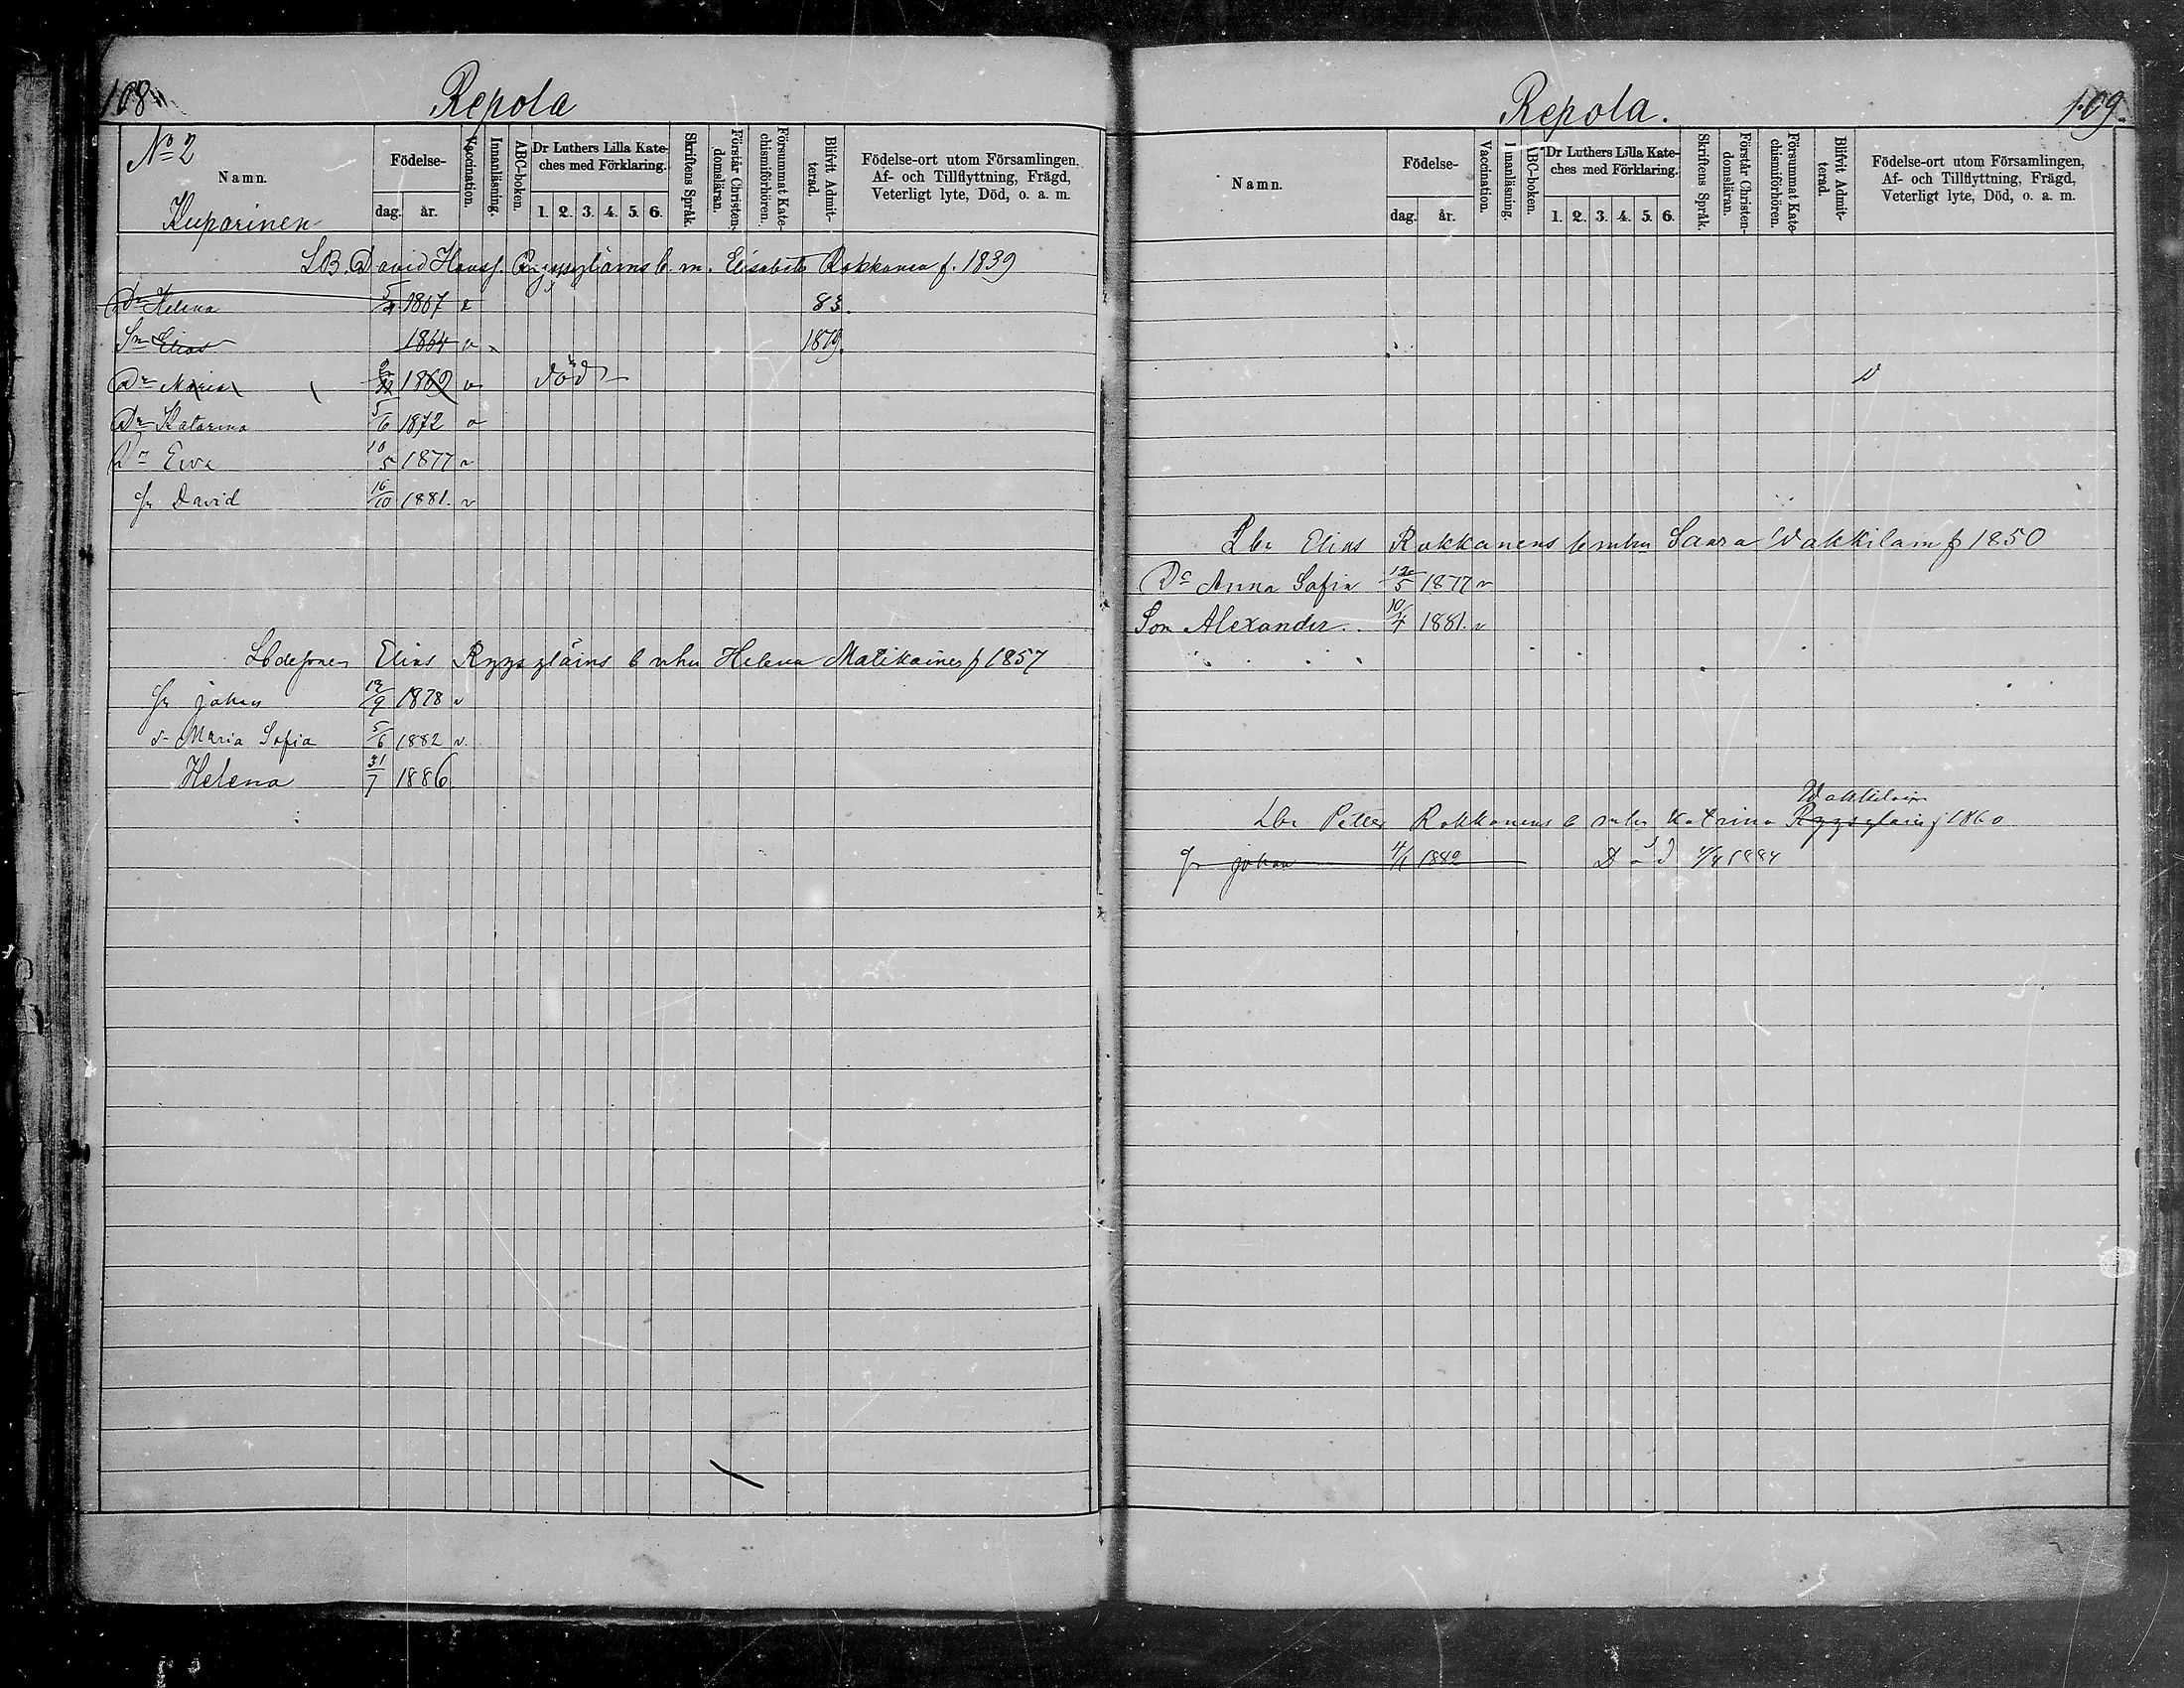 108.
Repola
No 2
Namn.
Kuparinen
Födelse-
dag. år.
Vaccination.
Innanläsning.
ABC-boken.
Dr Luthers Lilla Kate-
ches med Förklaring.
1. 2. 3. 4. 5. 6.
Skriftens Språk.
Förstår Christen-
domsläran.
Försummat Kate-
chismiförhören.
Blifvit Admit-
terad.
Födelse-ort utom Församlingen,
Af- och Tillflyttning, Frägd,
Veterligt lyte, Död, o. a. m.
LB. David Hansf. m. Elisabeth Rokkanen f. 1839
Dr Helena 5/4 1867 v 83.
Sn Elias 1864 v 1879.
Dr Maria 1869 v död
Dr Katarina 5/6 1872 v
Dr Ewa 10/5 1877 v
Sn David 16/10 1881. v
Elias Ryysyläins b Helena Matikainen f 1857
Sn Johan 12/9 1878 v
d- Maria Sofia 5/6 1882 v.
Helena 31/7 1886.
Repola.
109.
Namn.
Födelse-
dag. år.
Vaccination.
Innanläsning.
ABC-boken.
Dr Luthers Lilla Kate-
ches med Förklaring.
1. 2. 3. 4. 5. 6.
Skriftens Språk.
Förstår Christen-
domsläran.
Försummat Kate-
chismiförhören.
Blifvit Admit-
terad.
Födelse-ort utom Församlingen,
Af- och Tillflyttning, Frägd,
Veterligt lyte, Död, o. a. m.
Lbr Elias Rokkanens b Saara Wakkilain f 1850
Dr Anna Sofia 12/5 1877 v
Son Alexander 10/4 1881. v
Wakkilain
Lbr Petter Rokkanens b Katrina Ryysyläin f 1860
Sn Johan 4/1 1882 Död 4/4 1884